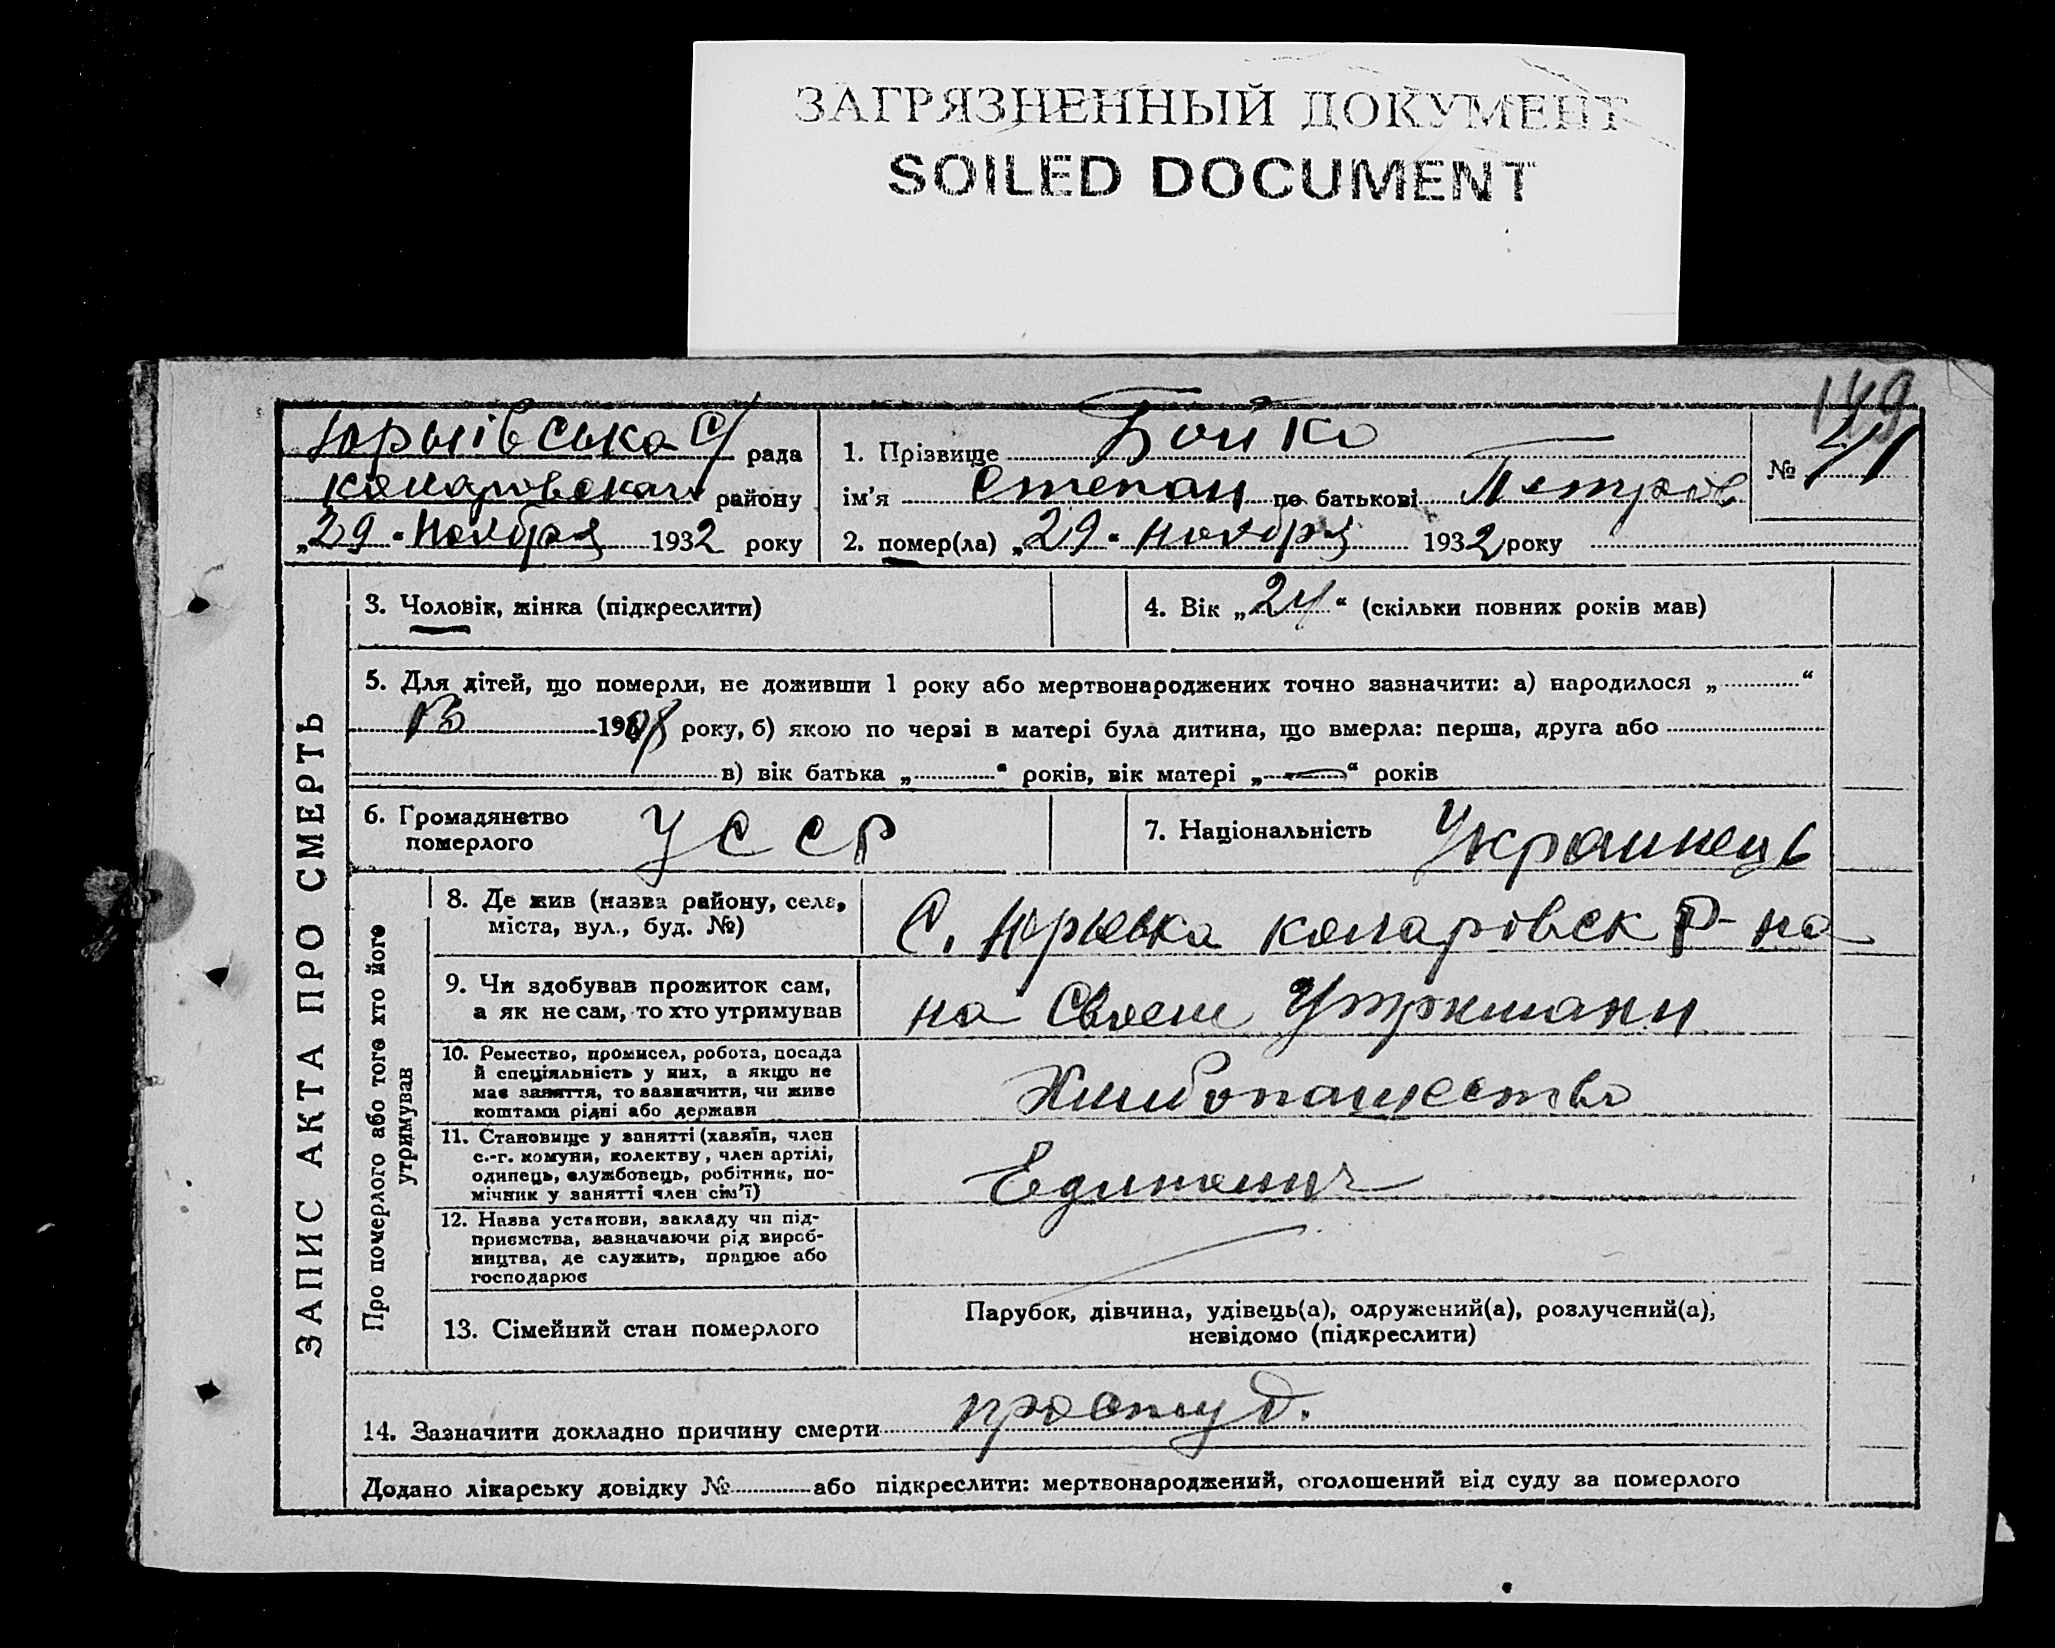 ЗАГРЯЗНЕННЫЙ ДОКУМЕНТ
SOILED DOCUMENT
149
Юрыівська С/ рада
район­у
„29“ Ноября 1932 року
1. Прізвище Бойко
ім’я Степан по батькові Петров
№ 41
2. помер(ла) „29“ ноября 1932 року
ЗАПИС АКТА ПРО СМЕРТЬ
3. Чоловік, жінка (підкреслити)
4. Вік „24“ (скільки повних років мав)
5. Для дітей, що померли, не доживши 1 року або мертвонароджених точно зазначити: а) народилося „ “
1908 року, б) якою по черзі в матері була дитина, що вмерла: перша, друга або
в) вік батька „ “ років, вік матері „—“ років
6. Громадянство
померлого
УССР
7. Національність Украинець
Про померлого або того хто його
утримував
8. Де жив (назва району, села,
міста, вул., буд. №)
С. Юрьевка Р-на
9. Чи здобував прожиток сам,
а як не сам, то хто утримував
на Своем
10. Ремество, промисел, робота, посада
й спеціяльність у них, а якщо не
має заняття, то зазначити, чи живе
коштами рідні або держави
11. Становище у занятті (хазяїн, член
с.-г. комуни, колективу, член артілі,
одинець, службовець, робітник, по-
мічник у занятті член сім’ї)
12. Назва установи, закладу чи під-
приємства, зазначаючи рід вироб-
ництва, де служить, працює або
господарює
13. Сімейний стан померлого
Парубок, дівчина, удівець(а), одружений(а), розлучений(а),
невідомо (підкреслити)
14. Зазначити докладно причину смерти простуд.
Додано лікарську довідку № або підкреслити: мертвонароджений, оголошений від суду за померлого